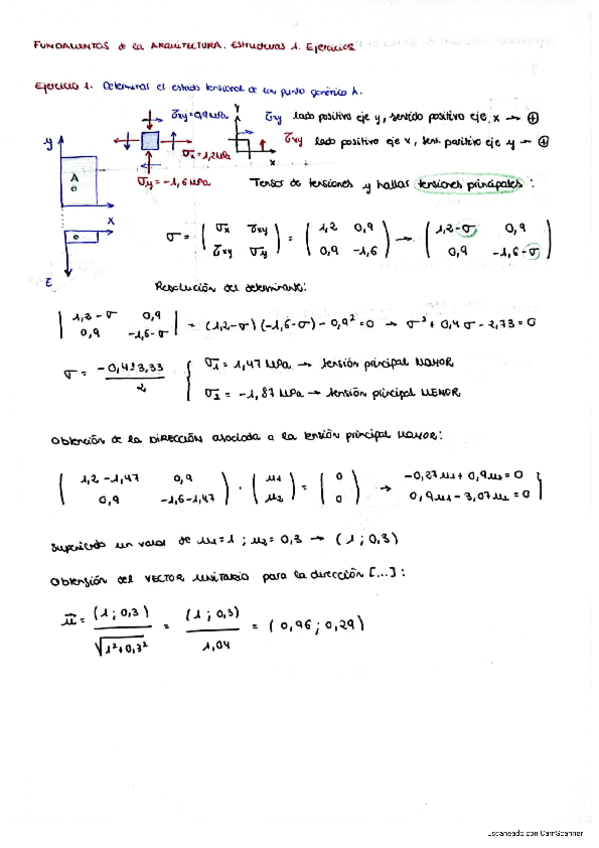 FUNDAMENTOS de la ARQUITECTURA. Estructuras 1. Ejercicios
Ejercicio 1. Determinar el estado tensional de un punto genérico A.
τxy = 0,9 MPa
σx = 1,2 MPa
σy = -1,6 MPa
y
A
x
z
Y
x
τxy lado positivo eje y, sentido positivo eje x → ⊕
τxy lado positivo eje x, sent. positivo eje y → ⊕
Tensor de tensiones y hallar tensiones principales:
σ = ( σx τxy ; τxy σy ) = ( 1,2 0,9 ; 0,9 -1,6 ) → ( 1,2-σ 0,9 ; 0,9 -1,6-σ )
Resolución del determinante:
| 1,2-σ 0,9 ; 0,9 -1,6-σ | = (1,2-σ)(-1,6-σ) - 0,9² = 0 → σ² + 0,4σ - 2,73 = 0
σ = (-0,4 ± 3,33) / 2
σ1 = 1,47 MPa → tensión principal MAYOR
σ2 = -1,87 MPa → tensión principal MENOR
Obtención de la DIRECCIÓN asociada a la tensión principal MAYOR:
( 1,2-1,47 0,9 ; 0,9 -1,6-1,47 ) · ( μ1 ; μ2 ) = ( 0 ; 0 ) → -0,27μ1 + 0,9μ2 = 0 ; 0,9μ1 - 3,07μ2 = 0 }
un valor de μ1 = 1 ; μ2 = 0,3 → (1 ; 0,3)
Obtensión del VECTOR UNITARIO para la dirección [...]:
μ⃗ = (1 ; 0,3) / √1²+0,3² = (1 ; 0,3) / 1,04 = (0,96 ; 0,29)
Escaneado con CamScanner